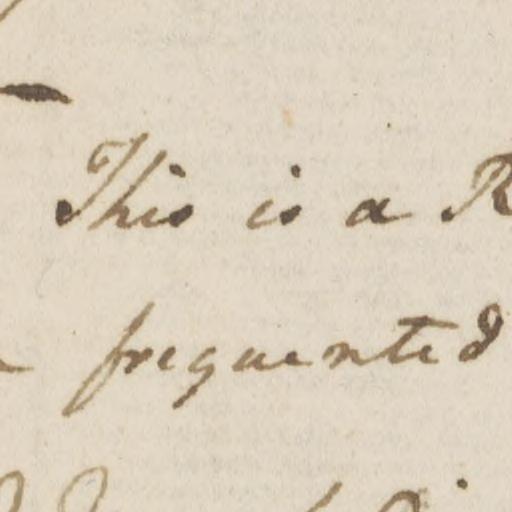 This is a R
frequented